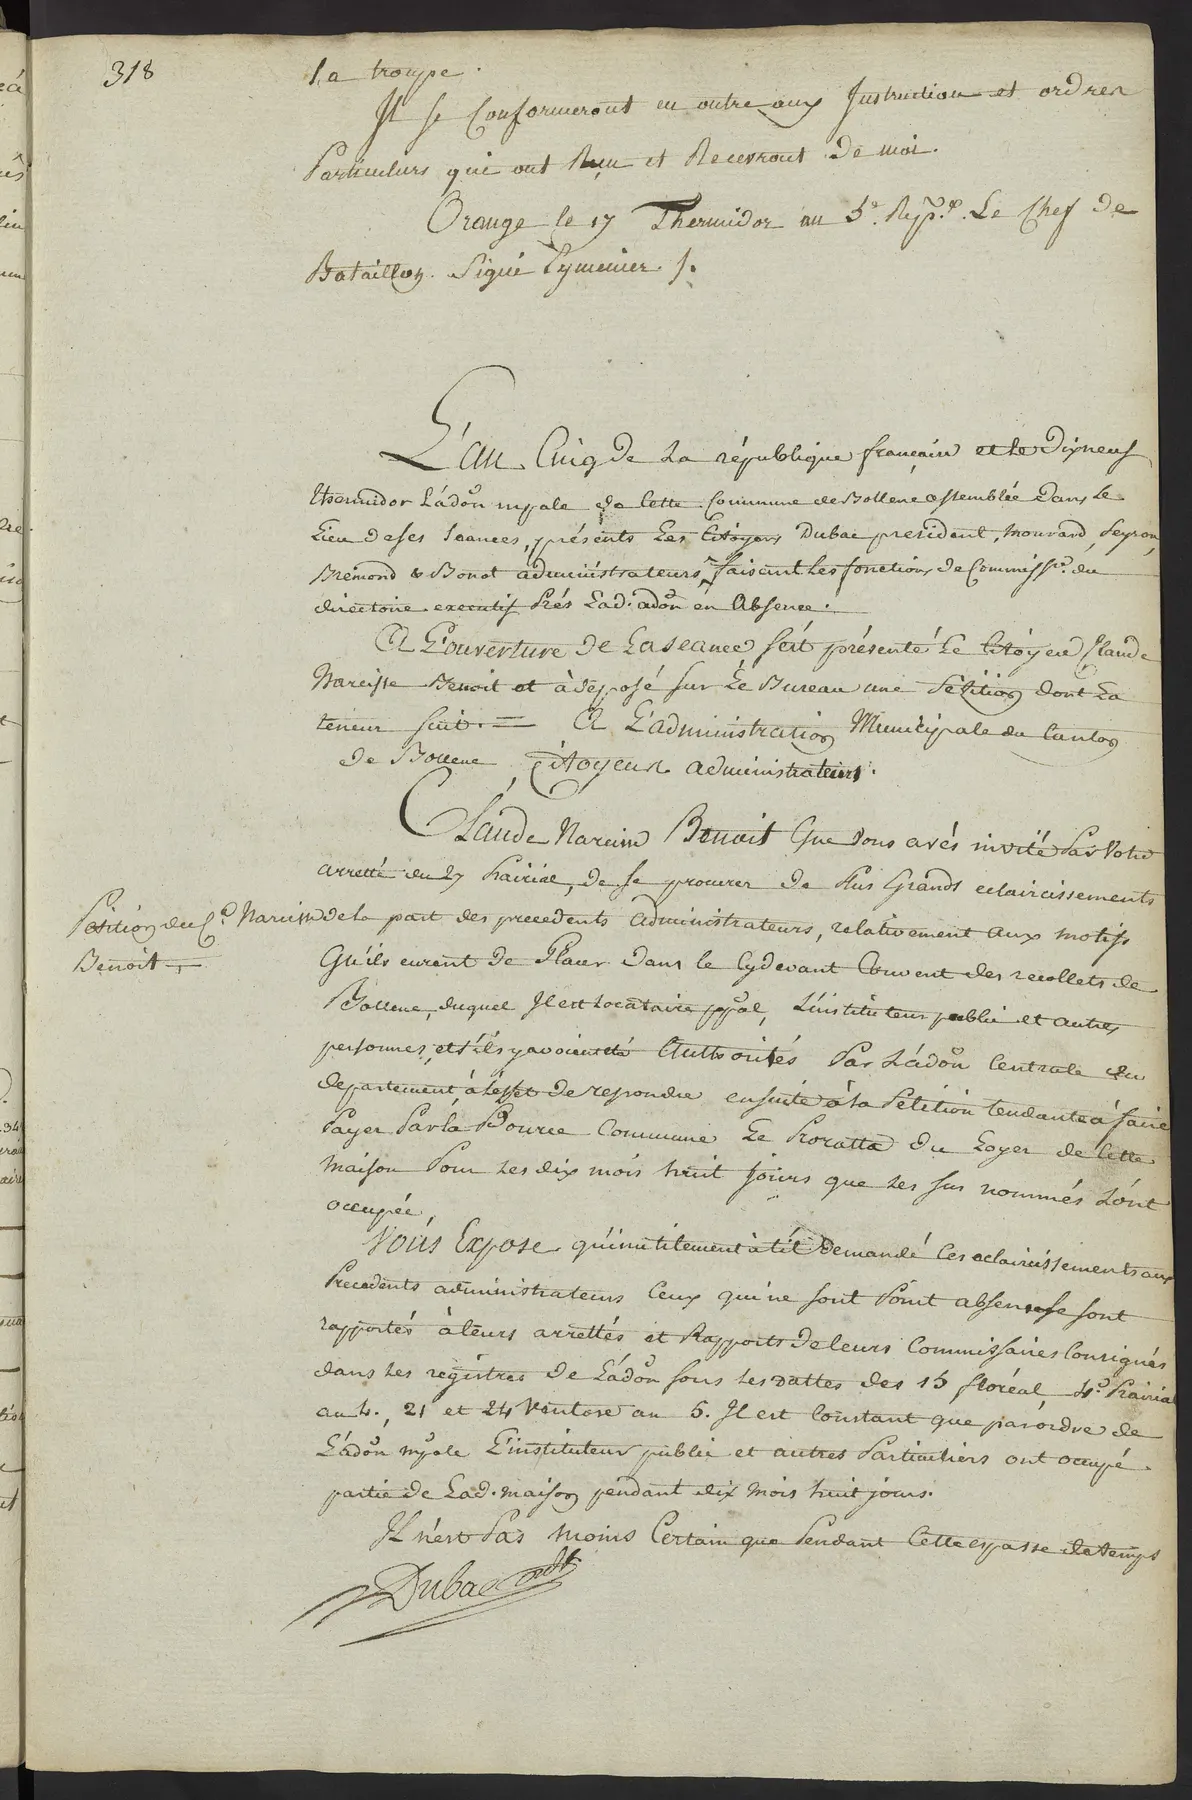 318
la troupe.
Il se Conformeront en outre aux Instruction et ordres
Particuliers qui ont Reçu et Recevront de moi.
Orange le 17 Thermidor an 5e. Rep.e. Le Chef de
Bataillon. Signé Eymenier /.
L'an Cinq de La république française et le Dixneuf
thermidor L'ádõn mpale de Cette Commune de Bollene assemblée dans Le
Lieu de ses Seances, présents Les Citoyens Dubac president, mourard, Peyron,
Brémond & Bonot administrateurs, faisant Les fonctions de Commiss.re du
directoire executif Prés Lad. adõn en Absence.
A L'ouverture de La seance s'est présenté Le Citoyen Claude
Narcisse Benoit et à déposé sur Le Bureau une Pétition dont La
teneur suit. = A L'administration Municipale du Canton
de Bollene, Citoyens administrateurs.
Claude Narcisse Benoit Que Vous avés invité Par Votre
arretté du 27 Prairial, de se procurer de Plus Grands eclaircissements
Petition du C.n Narcisse
Benoit =
de la part des precedents administrateurs, relativement aux motifs
Qu'ils eurent de Placer dans le Cydevant Couvent des recollets de
Bollene, duquel Il est Locataire ppãl, L'instituteur public et autres
personnes, et s'ils y avoient été Authorisés Par L'ádõn Centrale du
departement, à L'effet de repondre ensuite à la Pétition tendante à faire
Payer Par la Bource Commune Le Proratta du Loyer de Cette
maison Pour Les dix mois huit jours que Les sus nommés L'ont
occupée,
Vous Expose qu'inutilement à t'il demandé Ces eclaircissements aux
Precedents administrateurs Ceux qui ne sont Point absens se sont
rapportés à leurs arrettés et Rapports de leurs Commissaires Consignés
dans Les registres de L'ádõn sous Les dattes des 15 floréal 4e. Prairial
an 4., 21 et 24 Ventose an 5. Il est Constant que par ordre de
L'ádõn mpale L'instituteur public et autres Particuliers ont occupé
partie de Lad. maison pendant dix mois huit jours.
Il n'est Pas moins Certain que Pendant Cette espasse de temps
Dubac pdt